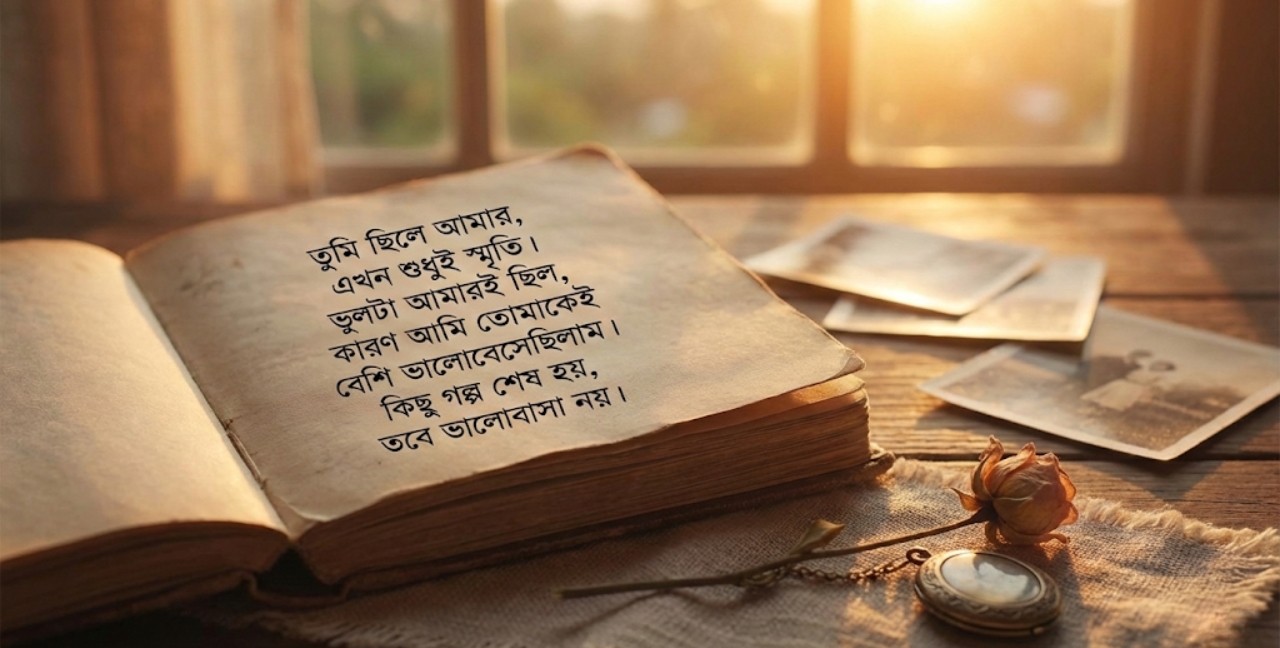 তুমি ছিলে আমার,
এখন শুধুই স্মৃতি।
ভুলটা আমারই ছিল,
কারণ আমি তোমাকেই
বেশি ভালোবেসেছিলাম।
কিছু গল্প শেষ হয়,
তবে ভালোবাসা নয়।